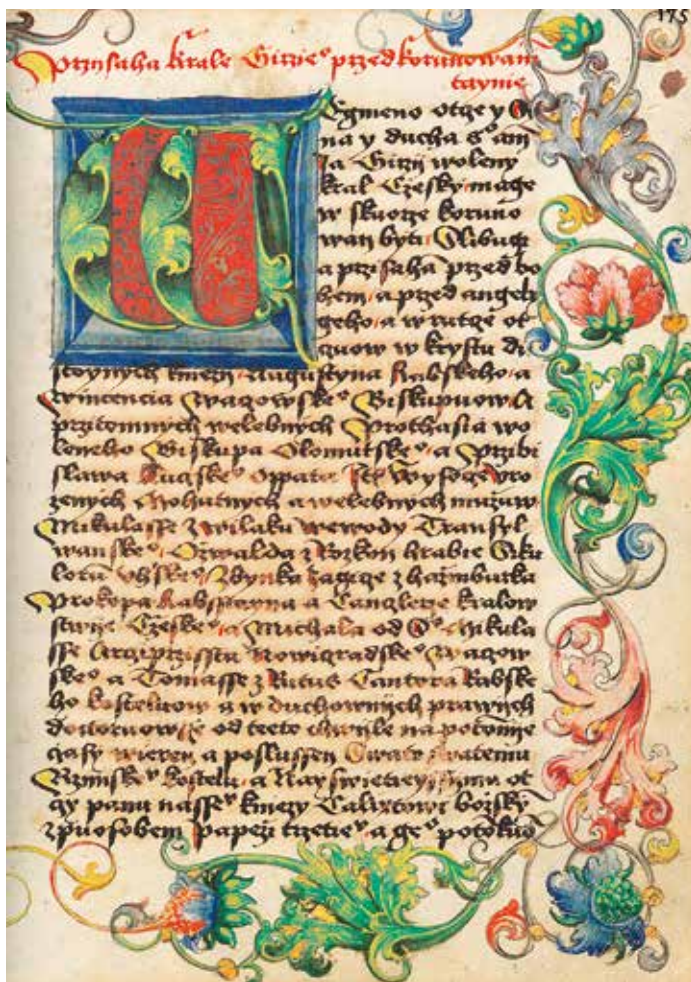 175
Przisaha krale Girzie° przed korunowanim
taynie
W Egmeno otcze y Si
na y ducha s° am
Ja Girzij woleny
kral Czesky mage
w skuorze koruno
wan byti Slibugi
a przisaham przed bo
hem a przed angeli
geho a w rutze ot
czuow w krystu du
stoynych knezy Augustyna Rabskeho a
Wincencia Wagowske° Biskupuow A
przitomnych welebnych Prothasia wo
leneho Biskupa Olomutske° a Przibi
slawa Opata Wysoge uro
zenych Mohutnych a welebnych muzuw
Mikulasse z wilaku wewody Transyl
wanske° Oswalda z Rozkon hrabie Siku
loru Uhrske° Zbynka Zagicze z hazmburka
Prokopa Rabsstayna a Canglerze kralow
stwie Czeske° a Michala od S° Mikula
sse Arczipriessta Nowigradske° Wagow
ske° a Tomasse z Ritus Cantora Rabske
ho kosteluow a w duchownijch prawijch
doktoruow ze od teeto chwijle na potomnije
czasy wieren a poslussen Swate Swatemu
Rzimske° kostelu a Nayswietieyssimu ot
czy panu nasse° knezy Calixtowi bozskym
zpuosobem papezi trzetie° a ge° potomkuom